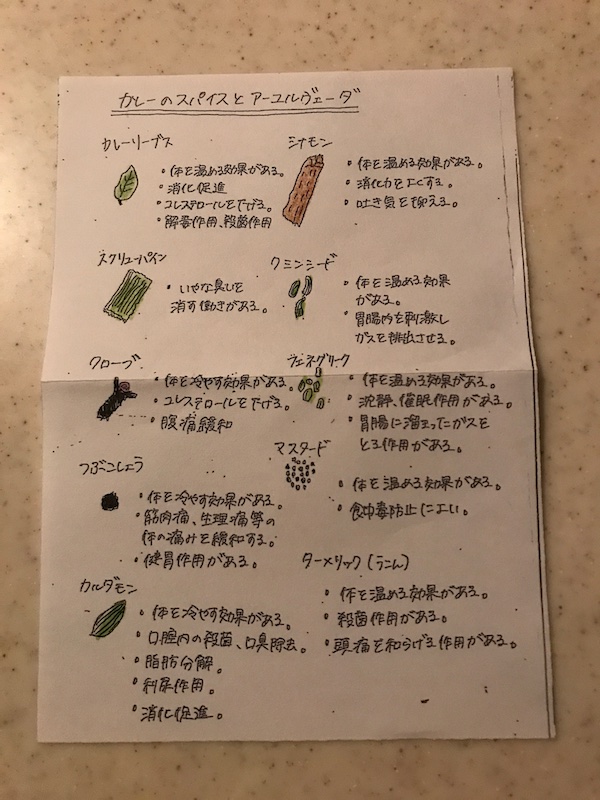 カレーのスパイスと アーユルヴェーダ
カレーリーブス
・体を温める効果がある。
・消化促進
・コレステロールを下げる。
・解毒作用、殺菌作用
シナモン
・体を温める効果がある。
・消化力をよくする。
・吐き気を抑える。
スクリューパイン
・いやな臭いを
消す働きがある。
クミンシード
・体を温める効果
がある。
・胃腸内を刺激し
ガスを排出させる。
クローブ
・体を冷やす効果がある。
・コレステロールを下げる。
・腹痛緩和
フェネグリーク
・体を温める効果がある。
・沈静、催眠作用がある。
・胃腸に溜まったガスを
とる作用がある。
つぶこしょう
・体を冷やす効果がある。
・筋肉痛、生理痛等の
体の痛みを緩和する。
・健胃作用がある。
マスタード
・体を温める効果がある。
・食中毒防止によい。
カルダモン
・体を冷やす効果がある。
・口腔内の殺菌、口臭除去。
・脂肪分解。
・利尿作用。
・消化促進。
ターメリック(うこん)
・体を温める効果がある。
・殺菌作用がある。
・頭痛を和らげる作用がある。